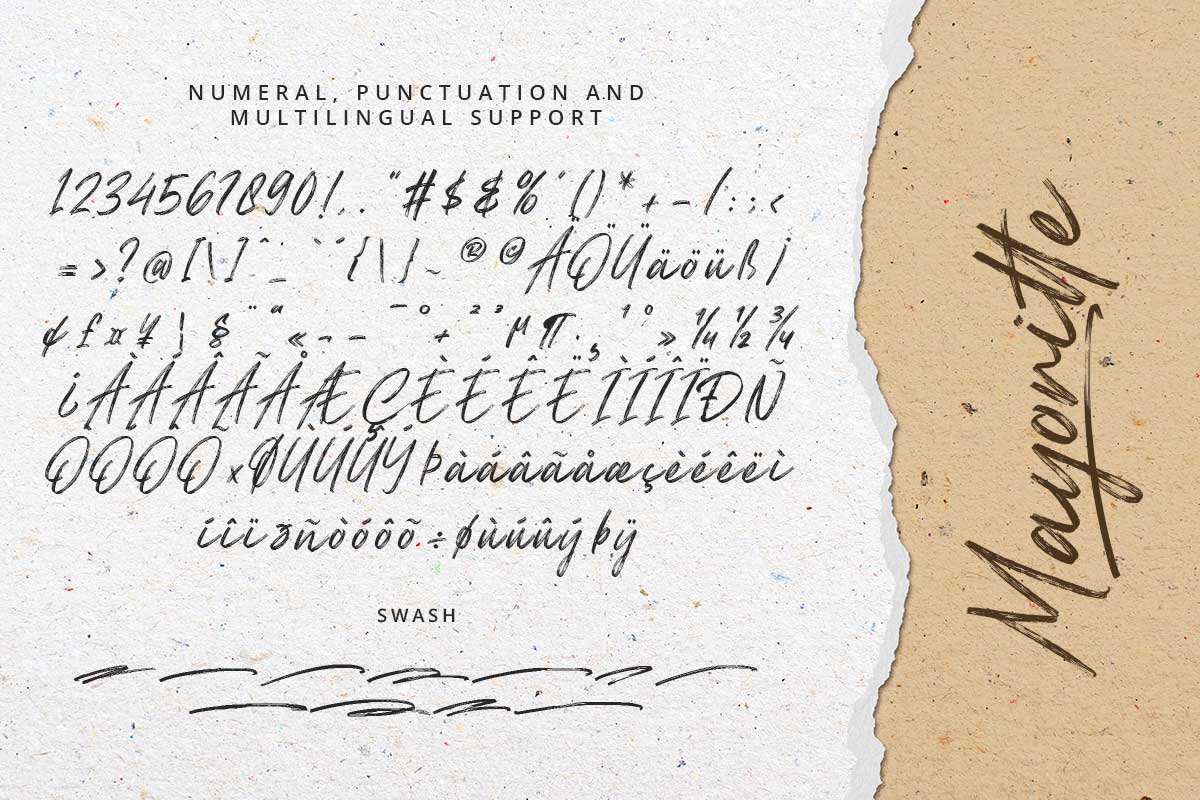 NUMERAL, PUNCTUATION AND
MULTILINGUAL SUPPORT
1234567890!,.."#$&%'()*+-/:;<
=>?@[\]^_`´{\}~®©ÄÖÜäöüß¡
¢£¤¥¦§¨ª«¬-¯°+²³µ¶·¸¹º»¼½¾
¿ÀÁÂÃÅÆÇÈÉÊËÌÍÎÏÐÑ
ÒÓÔÕ×ØÙÚÛÝÞàáâãåæçèéêëì
íîïðñòóôõ÷øùúûýþÿ
SWASH
Mayoritte